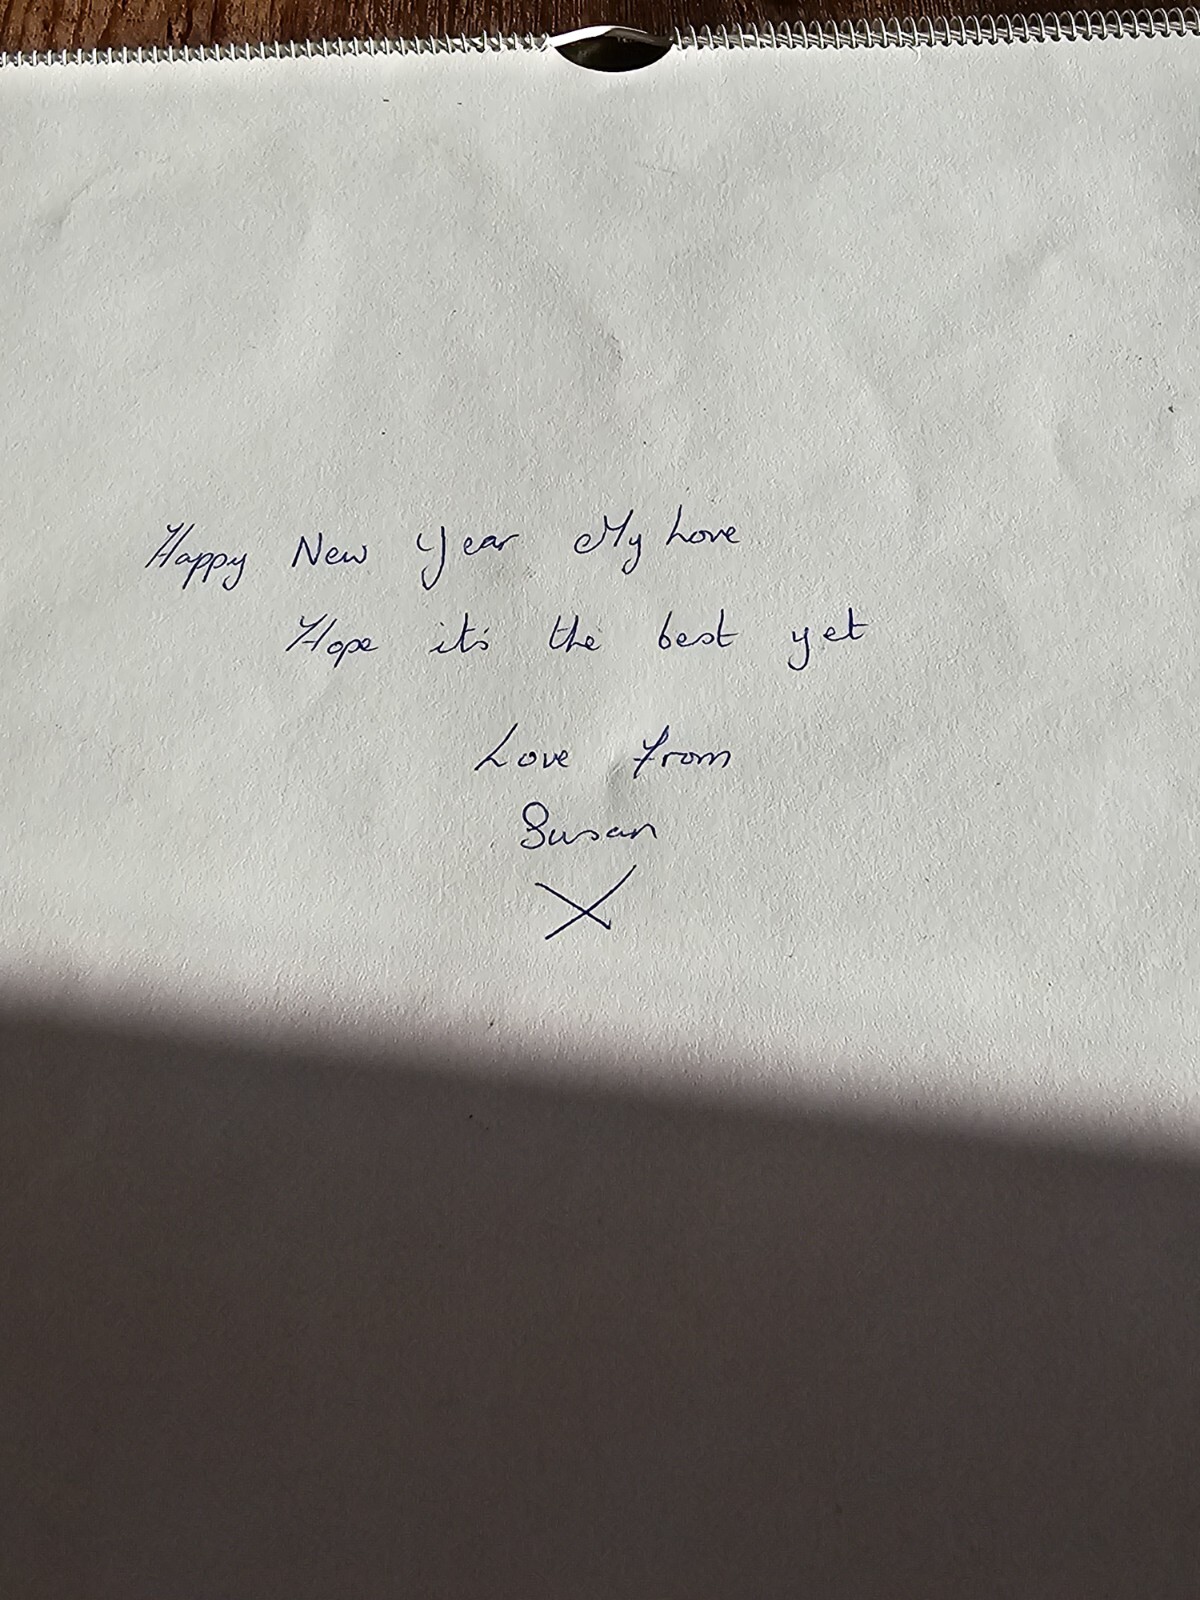 Happy New Year My Love
Hope it's the best yet
Love from
Susan
X